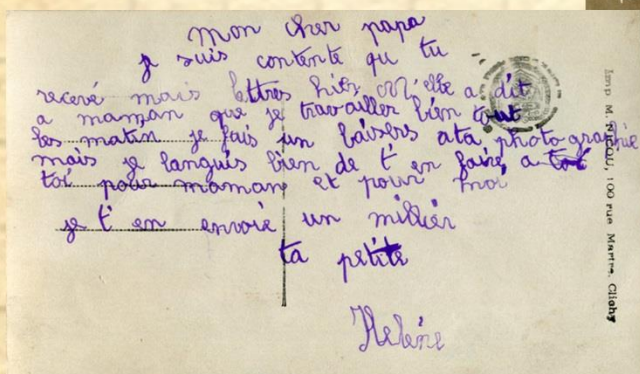 mon cher papa
je suis contente qu tu
recevé mais lettres hier Melle a dit
a maman que je travailler bien tout
les matin je fais un baisers a ta photographie
mais je languis bien de t'en faire a toi
toi pour maman et pour moi
je t'en envoie un millier
ta petite
Helène
Imp M. NICOLI, 100 rue Martre, Clichy